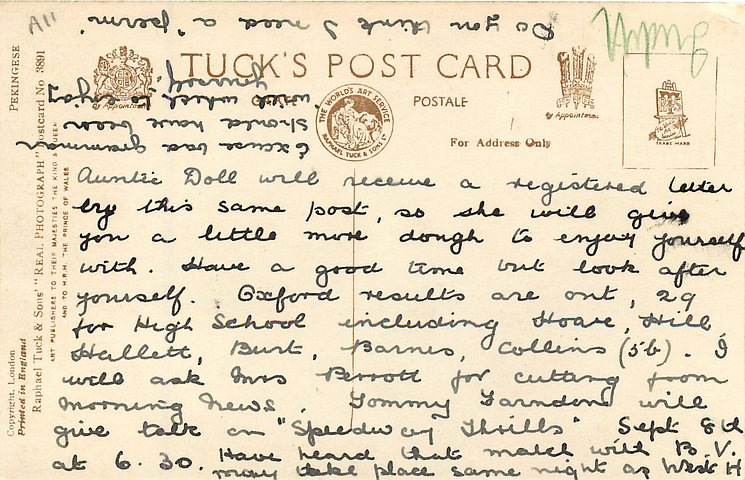 A11
Do you think I need a "perm"
TUCK'S POST CARD
POSTALE
For Address Only
By Appointment
By Appointment
THE WORLD'S ART SERVICE
RAPHAEL TUCK & SONS LD
TRADE MARK
PEKINGESE
Raphael Tuck & Sons' "REAL PHOTOGRAPH" Postcard No 3891
ART PUBLISHERS TO THEIR MAJESTIES THE KING & QUEEN
AND TO H.R.H. THE PRINCE OF WALES
Copyright, London
Printed in England
Auntie Doll will receive a registered letter
by this same post, so she will give
you a little more dough to enjoy yourself
with. Have a good time but look after
yourself. Oxford results are out, 29
for High School including Hoare, Hill
Hallett, Burt, Barnes, Collins (5b). I
will ask Mrs Perrott for cutting from
Morning News. Tommy Farndon will
give talk on "Speedway Thrills" Sept 8th
at 6.30. Have heard that match with B.V.
may take place same night as West H
Excuse bad grammar
should have been
"with which to enjoy
yourself"